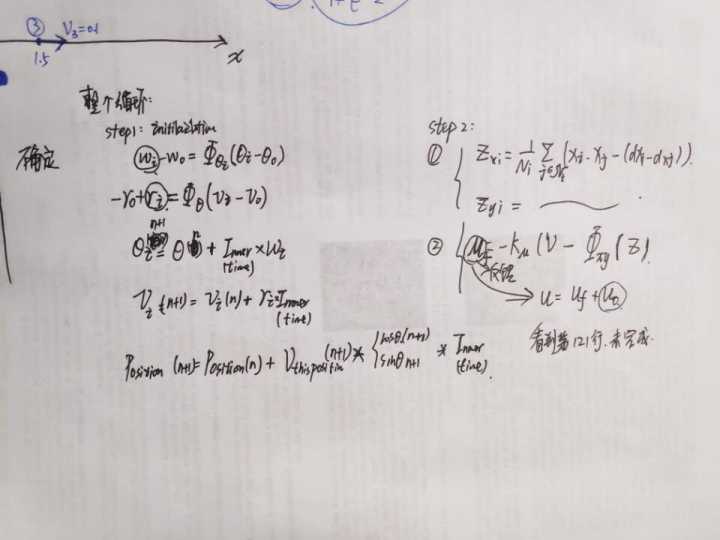 ③ V₃=0.1
1.5
x
整个循环:
step1: initilaziation
确定
ωᵢ-ω₀ = Φ_θᵢ(θᵢ-θ₀)
-r₀+rᵢ = Φ_θ(vᵢ-v₀)
n+1
θᵢ = θ + Inner×ωᵢ
(time)
Vᵢ(n+1) = Vᵢ(n) + rᵢ×Inner
(time)
Position (n+1) = Position(n) + V this position (n+1) * { cosθ(n+1) sinθ n+1 * Inner
(time)
step 2:
① { Z_xi = 1/Nᵢ Σ_{j∈Nᵢ} (xᵢ-xⱼ-(dxᵢ-dxⱼ)).
Z_yi =
② { u_f = -k_u(V - Φ_xy(Z).
u = u_f + u_n
看到第121行. 未完成.